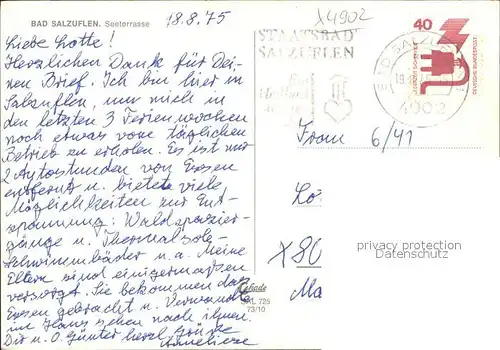 BAD SALZUFLEN. Seeterrasse
18.8.75
Liebe Lotte!
Herzlichen Dank für Dei-
nen Brief. Ich bin hier in
Salzuflen, nur mich in
den letzten 3 Ferienwochen
noch etwas vom täglichen
Betrieb zu erholen. Es ist nur
2 Autostunden von Essen
entfernt u. bietet viele
Möglichkeiten zur Ent-
spannung: Waldspazier-
gänge u. Thermalsole-
Schwimmbäder u. a. Meine
Eltern sind einigermaßen
versorgt. Sie bekommen das
Essen gebracht u. Verwandte
im Haus sehen nach ihnen.
Dir u. O. Günter herzl. Grüße
Hanneliese
X4902
STAATSBAD
SALZUFLEN
40
DEUTSCHE BUNDESPOST
BAD SALZUFLEN
4902
From 6/41
X80
privacy protection
Datenschutz
SAL 725
73/10